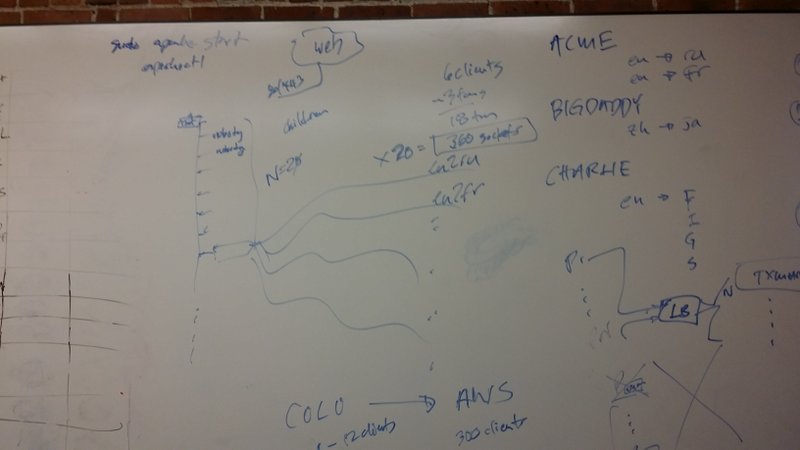 sudo apache start
apachectl
web
80/443
children
nobody
nobody
N=25
6 clients
~3 lang
18 tm
x 20 = 360 sockets
en2ru
en2fr
ACME
en → ru
en → fr
BIGDADDY
zh → ja
CHARLIE
en → F
I
G
S
P1
LB
N
COLO → AWS
12 clients
300 clients